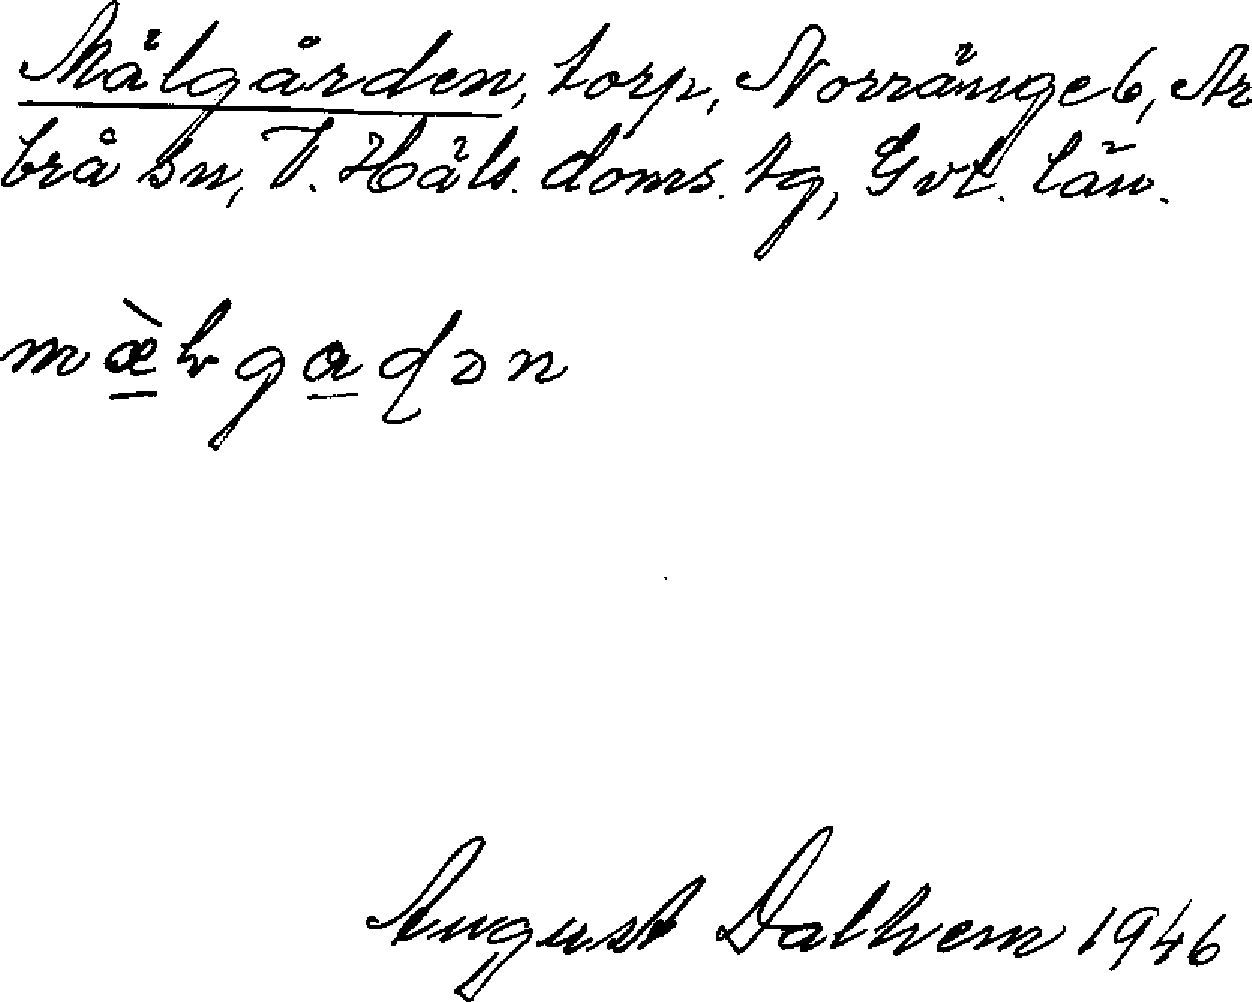 Mälgården, torp, Norränge 6, Ar
brå sn, V. Häls. doms. tg, Gvl. län.
mæ̀lgaɖən
August Dalhem 1946